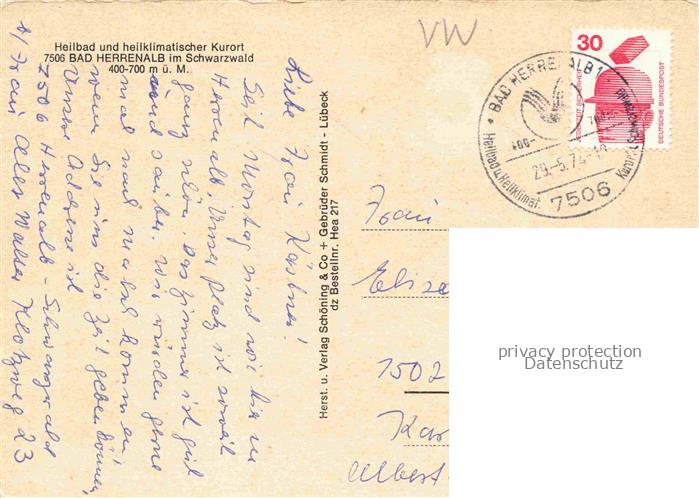 Heilbad und heilklimatischer Kurort
7506 BAD HERRENALB im Schwarzwald
400-700 m ü. M.
Liebe Frau Kästner!
Seit Montag sind wir hier in
Herrenalb. Unser Platz ist soweit
ganz schön. Das Zimmer ist gut
und sauber, wir würden gerne
mal nach kommen,
wenn Sie uns die Zeit geben können,
Unsere Adresse ist
7506 Herrenalb - Schwarzwald
b/ Frau Walter Klotzweg 23
Herst. u. Verlag Schöning & Co + Gebrüder Schmidt - Lübeck
dz Bestellnr. Hea 217
VW
30
JEDERZEIT SICHERHEIT
DEUTSCHE BUNDESPOST
BAD HERRENALB 1
400-
700
29.-5.74-18
Heilbad u. Heilklimat. Kurort
7506
Frau
Elise
1502
Kar
Albert-
privacy protection
Datenschutz